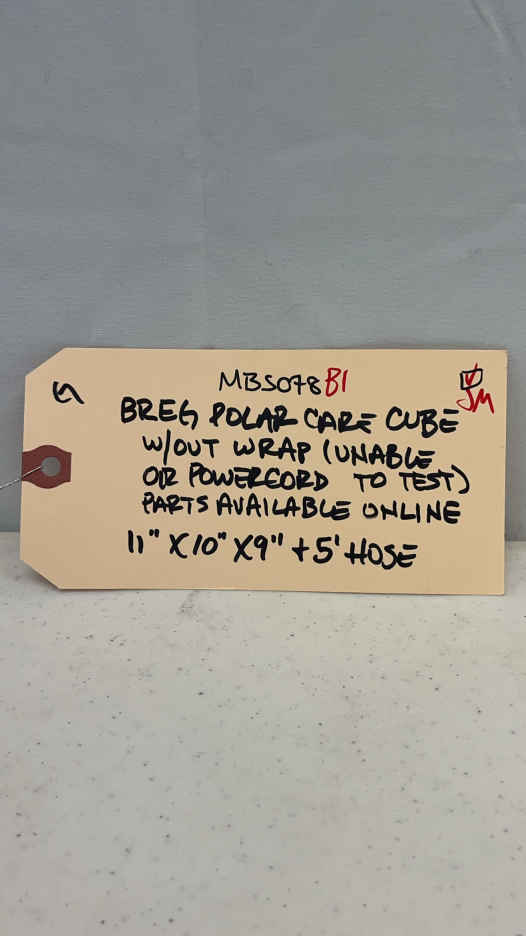 MBS078 B1
JM
BREG POLAR CARE CUBE
W/OUT WRAP (UNABLE
OR POWERCORD TO TEST)
PARTS AVAILABLE ONLINE
11" X 10" X 9" + 5' HOSE